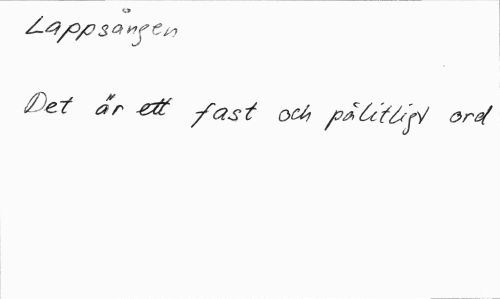 Lappsången
Det är ett fast och pålitligt ord